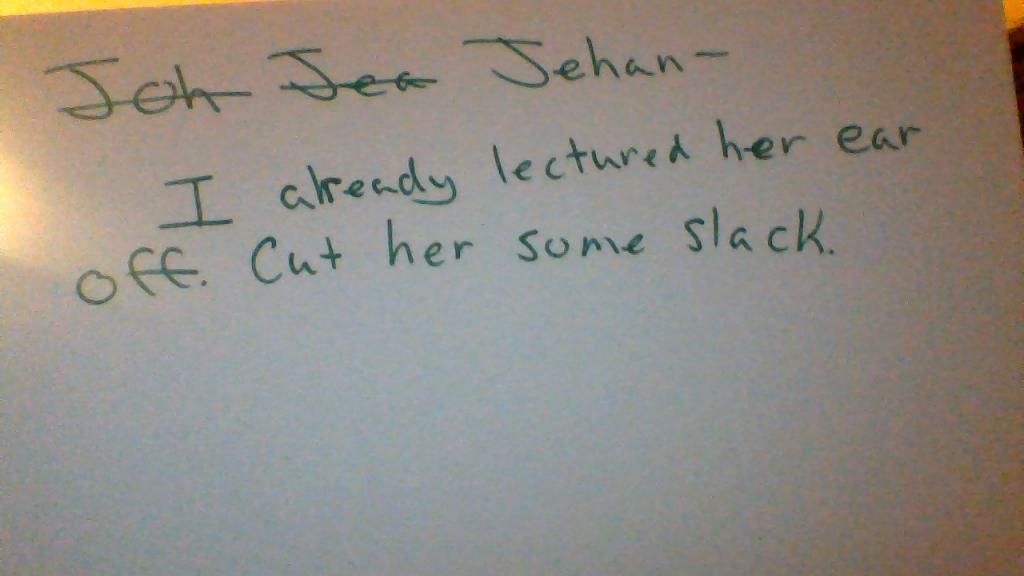 Joh Jea Jehan-
I already lectured her ear
off. Cut her some slack.